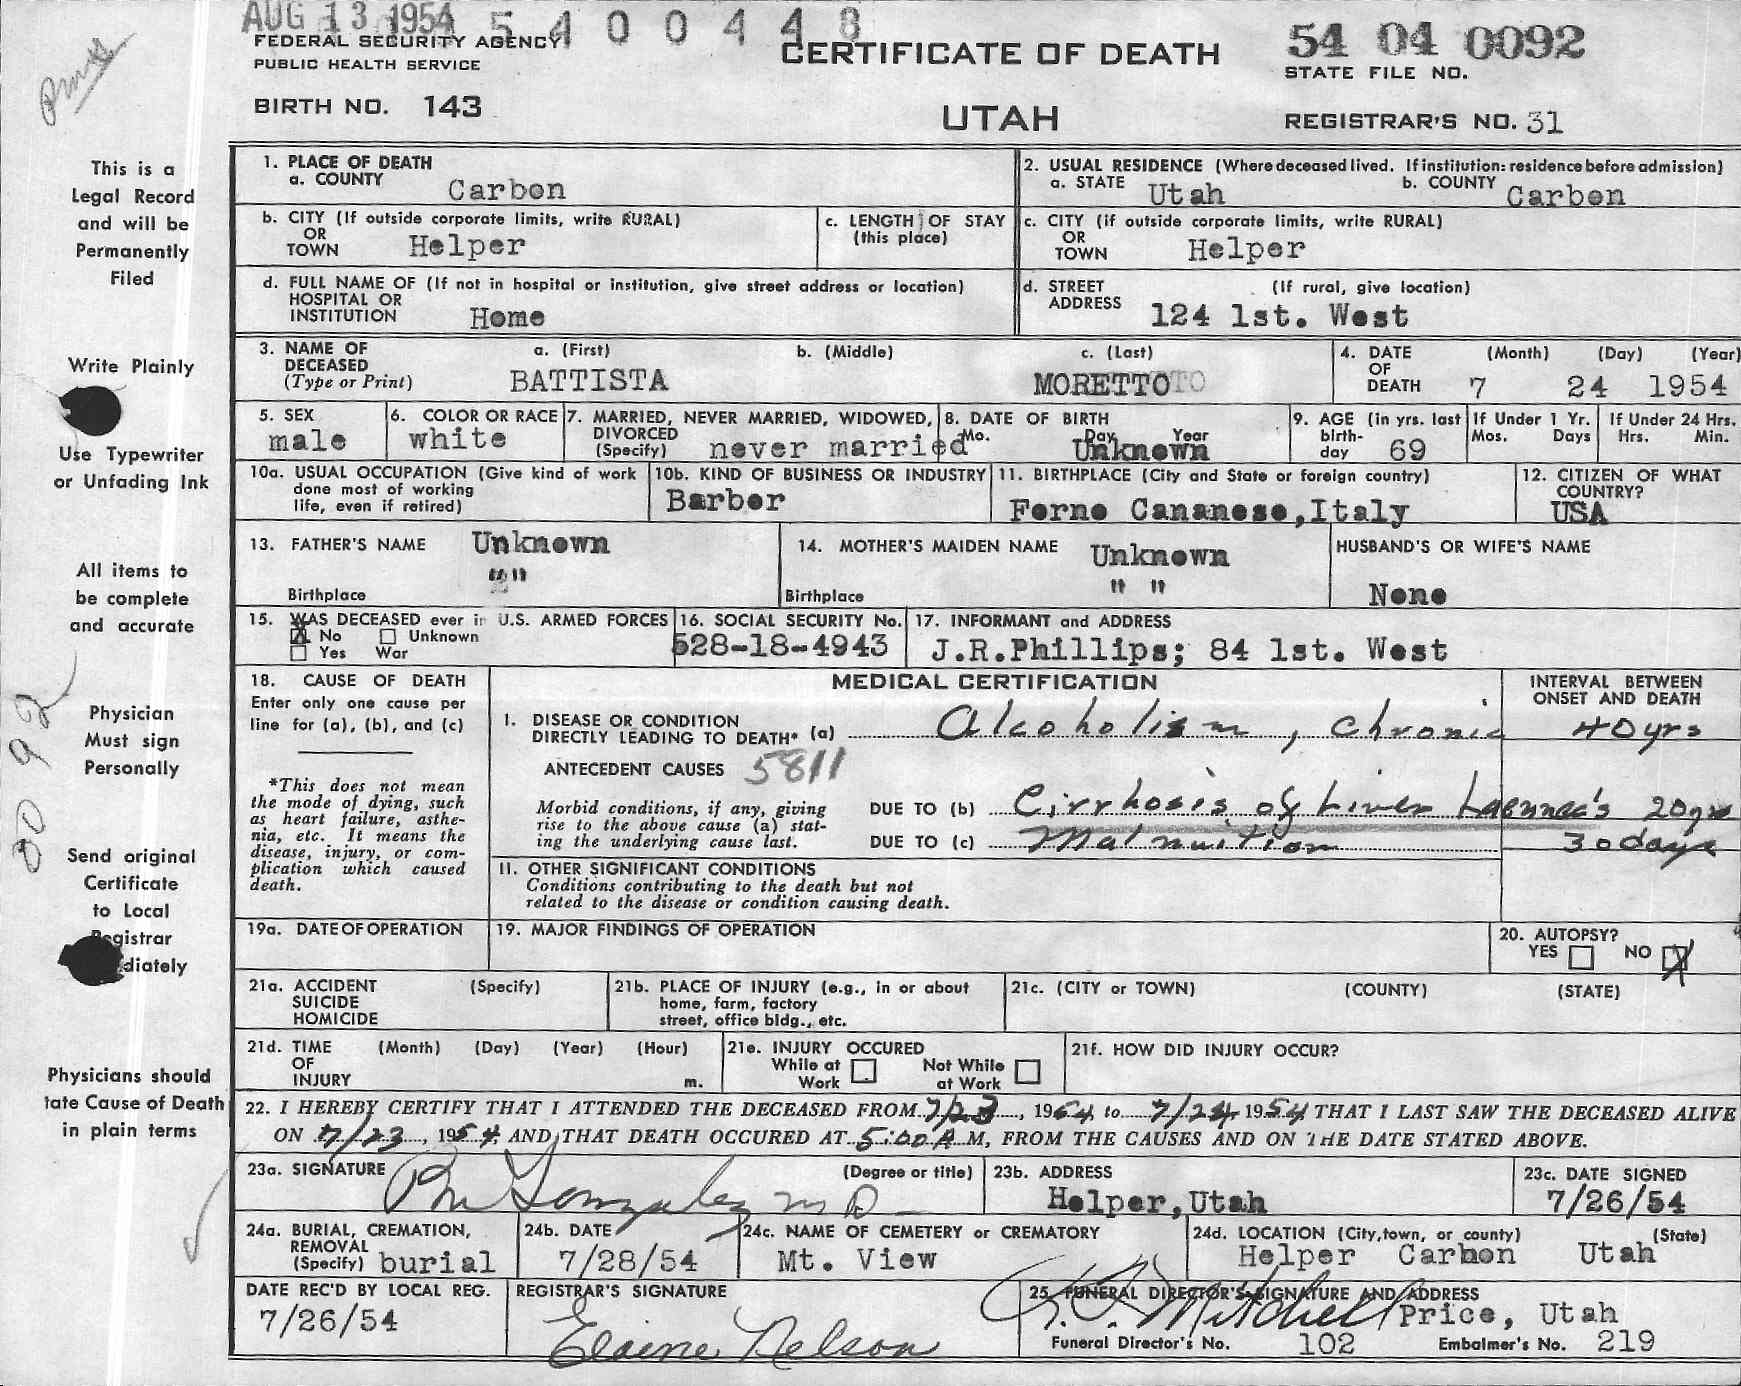 AUG 13 1954 5 4 0 0 4 4 8
FEDERAL SECURITY AGENCY
PUBLIC HEALTH SERVICE
CERTIFICATE OF DEATH
54 04 0092
STATE FILE NO.
BIRTH NO. 143
UTAH
REGISTRAR'S NO. 31
This is a
Legal Record
and will be
Permanently
Filed
Write Plainly
Use Typewriter
or Unfading Ink
All items to
be complete
and accurate
Physician
Must sign
Personally
Send original
Certificate
to Local
gistrar
diately
Physicians should
tate Cause of Death
in plain terms
1. PLACE OF DEATH
a. COUNTY Carbon
2. USUAL RESIDENCE (Where deceased lived. If institution: residence before admission)
a. STATE Utah b. COUNTY Carbon
b. CITY (If outside corporate limits, write RURAL)
OR
TOWN Helper
c. LENGTH OF STAY
(this place)
c. CITY (if outside corporate limits, write RURAL)
OR
TOWN Helper
d. FULL NAME OF (If not in hospital or institution, give street address or location)
HOSPITAL OR
INSTITUTION Home
d. STREET (If rural, give location)
ADDRESS 124 1st. West
3. NAME OF a. (First) b. (Middle) c. (Last)
DECEASED
(Type or Print) BATTISTA MORETTO
4. DATE (Month) (Day) (Year)
OF
DEATH 7 24 1954
5. SEX
male
6. COLOR OR RACE
white
7. MARRIED, NEVER MARRIED, WIDOWED,
DIVORCED
(Specify) never married
8. DATE OF BIRTH
Mo. Day Year
Unknown
9. AGE (in yrs. last
birth-
day 69
If Under 1 Yr.
Mos. Days
If Under 24 Hrs.
Hrs. Min.
10a. USUAL OCCUPATION (Give kind of work
done most of working
life, even if retired)
10b. KIND OF BUSINESS OR INDUSTRY
Barber
11. BIRTHPLACE (City and State or foreign country)
Forno Cananese,Italy
12. CITIZEN OF WHAT
COUNTRY?
USA
13. FATHER'S NAME Unknown
Birthplace " "
14. MOTHER'S MAIDEN NAME Unknown
Birthplace " "
HUSBAND'S OR WIFE'S NAME
None
15. WAS DECEASED ever in U.S. ARMED FORCES
X No Unknown
Yes War
16. SOCIAL SECURITY No.
528-18-4943
17. INFORMANT and ADDRESS
J.R.Phillips; 84 1st. West
18. CAUSE OF DEATH
Enter only one cause per
line for (a), (b), and (c)
*This does not mean
the mode of dying, such
as heart failure, asthe-
nia, etc. It means the
disease, injury, or com-
plication which caused
death.
MEDICAL CERTIFICATION
INTERVAL BETWEEN
ONSET AND DEATH
I. DISEASE OR CONDITION
DIRECTLY LEADING TO DEATH* (a) Alcoholism, chronic 40 yrs
ANTECEDENT CAUSES 5811
Morbid conditions, if any, giving
rise to the above cause (a) stat-
ing the underlying cause last.
DUE TO (b) Cirrhosis of Liver Laennec's 20 yrs
DUE TO (c) Malnutrition 30 days
II. OTHER SIGNIFICANT CONDITIONS
Conditions contributing to the death but not
related to the disease or condition causing death.
19a. DATE OF OPERATION
19. MAJOR FINDINGS OF OPERATION
20. AUTOPSY?
YES NO X
21a. ACCIDENT (Specify)
SUICIDE
HOMICIDE
21b. PLACE OF INJURY (e.g., in or about
home, farm, factory
street, office bldg., etc.
21c. (CITY or TOWN) (COUNTY) (STATE)
21d. TIME (Month) (Day) (Year) (Hour)
OF
INJURY m.
21e. INJURY OCCURED
While at Not While
Work at Work
21f. HOW DID INJURY OCCUR?
22. I HEREBY CERTIFY THAT I ATTENDED THE DECEASED FROM 7/23, 1954 to 7/24 1954 THAT I LAST SAW THE DECEASED ALIVE
ON 7/23, 1954 AND THAT DEATH OCCURED AT 5:00 A M, FROM THE CAUSES AND ON THE DATE STATED ABOVE.
23a. SIGNATURE (Degree or title)
Gonzalez MD
23b. ADDRESS
Helper,Utah
23c. DATE SIGNED
7/26/54
24a. BURIAL, CREMATION,
REMOVAL
(Specify) burial
24b. DATE
7/28/54
24c. NAME OF CEMETERY or CREMATORY
Mt. View
24d. LOCATION (City,town, or county) (State)
Helper Carbon Utah
DATE REC'D BY LOCAL REG.
7/26/54
REGISTRAR'S SIGNATURE
Elaine Nelson
25. FUNERAL DIRECTOR'S SIGNATURE AND ADDRESS
Mitchell Price, Utah
Funeral Director's No. 102 Embalmer's No. 219